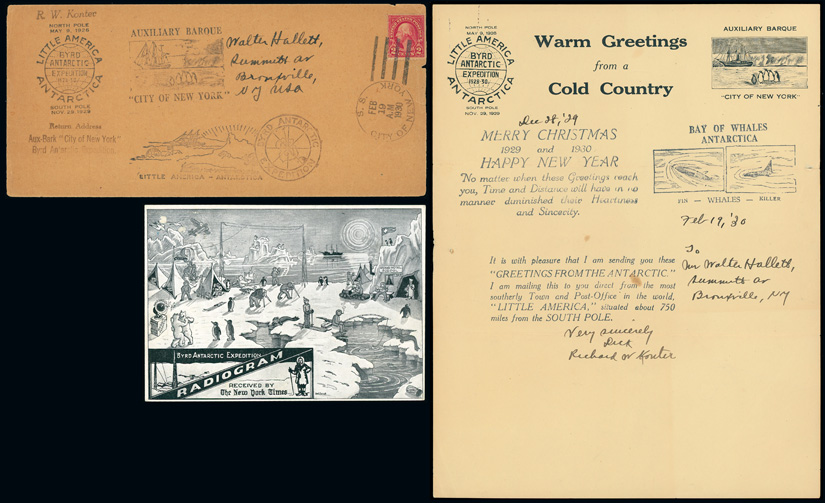 R. W. Konter
NORTH POLE
MAY 9, 1926
LITTLE AMERICA
BYRD
ANTARCTIC
EXPEDITION
1928-30.
ANTARCTICA
SOUTH POLE
NOV. 29, 1929
Return Address
Aux-Bark "City of New York"
Byrd Antarctic Expedition
AUXILIARY BARQUE
"CITY OF NEW YORK"
Walter Hallett,
Summitt av
Bronxville,
NY USA
S. S.
FEB
19
A.M.
1930
CITY OF NEW YORK
BYRD ANTARCTIC
EXPEDITION
LITTLE AMERICA - ANTARCTICA
BYRD ANTARCTIC EXPEDITION
RADIOGRAM
RECEIVED BY
The New York Times
NORTH POLE
MAY 9, 1926
LITTLE AMERICA
BYRD
ANTARCTIC
EXPEDITION
1928-30.
ANTARCTICA
SOUTH POLE
NOV. 29, 1929
Warm Greetings
from a
Cold Country
AUXILIARY BARQUE
"CITY OF NEW YORK"
Dec 28, '29
MERRY CHRISTMAS
1929 and 1930
HAPPY NEW YEAR
"No matter when these Greetings reach
you, Time and Distance will have in no
manner duminished their Heartiness
and Sincerity.
BAY OF WHALES
ANTARCTICA
FIN — WHALES — KILLER
Feb 19, '30
To
Mr Walter Hallett,
Summitt av
Bronxville, NY
It is with pleasure that I am sending you these
"GREETINGS FROM THE ANTARCTIC."
I am mailing this to you direct from the most
southerly Town and Post-Office in the world,
"LITTLE AMERICA," situated about 750
miles from the SOUTH POLE.
Very sincerely
Dick
Richard W Konter